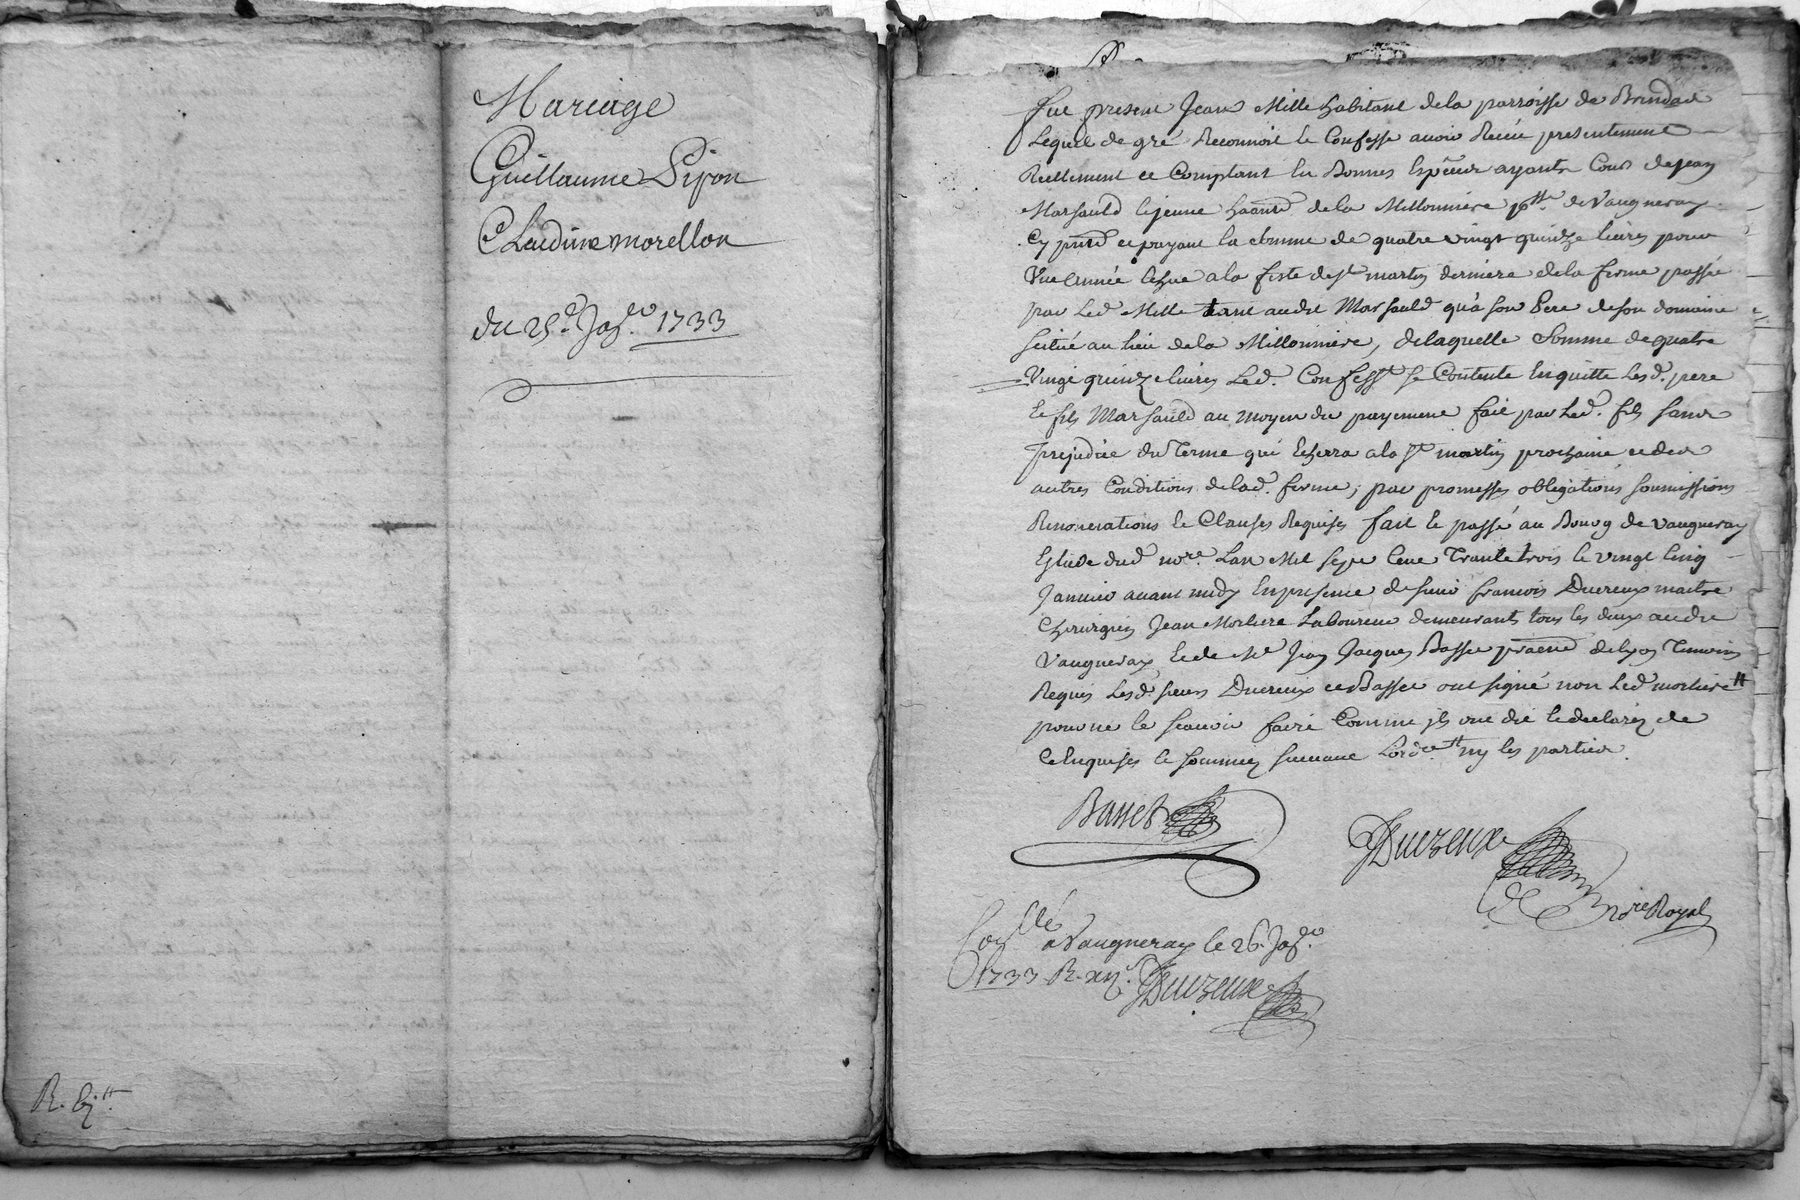 Mariage
Guillaume Pipon
Claudine morellon
du 25e. Jagr. 1733
R. Cj tt
fut present Jean Mille habitant dela parroisse de Brindas
Lequel de gré Reconnoit Et Confesse auoir Receu presentement
Reellement et Comptant En Bonnes Especes ayants Cours de Jean
Marsauld lejeune haant dela Millonniere psse de Vaugneray
Cy pnt et payant la somme de quatre vingt quinze liures pour
Une année Echue a la feste de st martin derniere de la ferme passée
par Led Mille tant audit Marsauld qu'a son Pere de son domaine
scitué au lieu dela Millonniere, delaquelle Somme de quatre
Vingt quinze liures Led. Confesst se Contente En quitte Lesd. pere
Et fils Marsauld au moyen du payement fait par Led. fils sans
prejudice du Terme qui Echerra a la st martin prochaine et des
autres Conditions de lad. ferme; par promesses obligations soumissions
Renonciations Et Clauses Requises fait Et passé au Bourg de vaugneray
Etude dud nore. Lan Mil sept Cent Trante trois le vingt Cinq
Januier auant midy En presence de sieur francois Ducreux maitre
Chirurgien Jean Morliere Laboureur demeurants tous les deux audit
Vaugneray Et de Me Jean Jacques Basset de Lyon Temoins
Requis Lesd. sieurs Ducreux et Basset ont signé non Led morliere #
pour ne le scauoir faire Comme ils ont dit Et declarés de
Ce Enquises Et sommés suiuant Lordce # ny les parties.
Basset
JDucreux
nore Royal
Conllé a Vaugneray le 26. Jagr.
1733 R. xij s. JDucreux